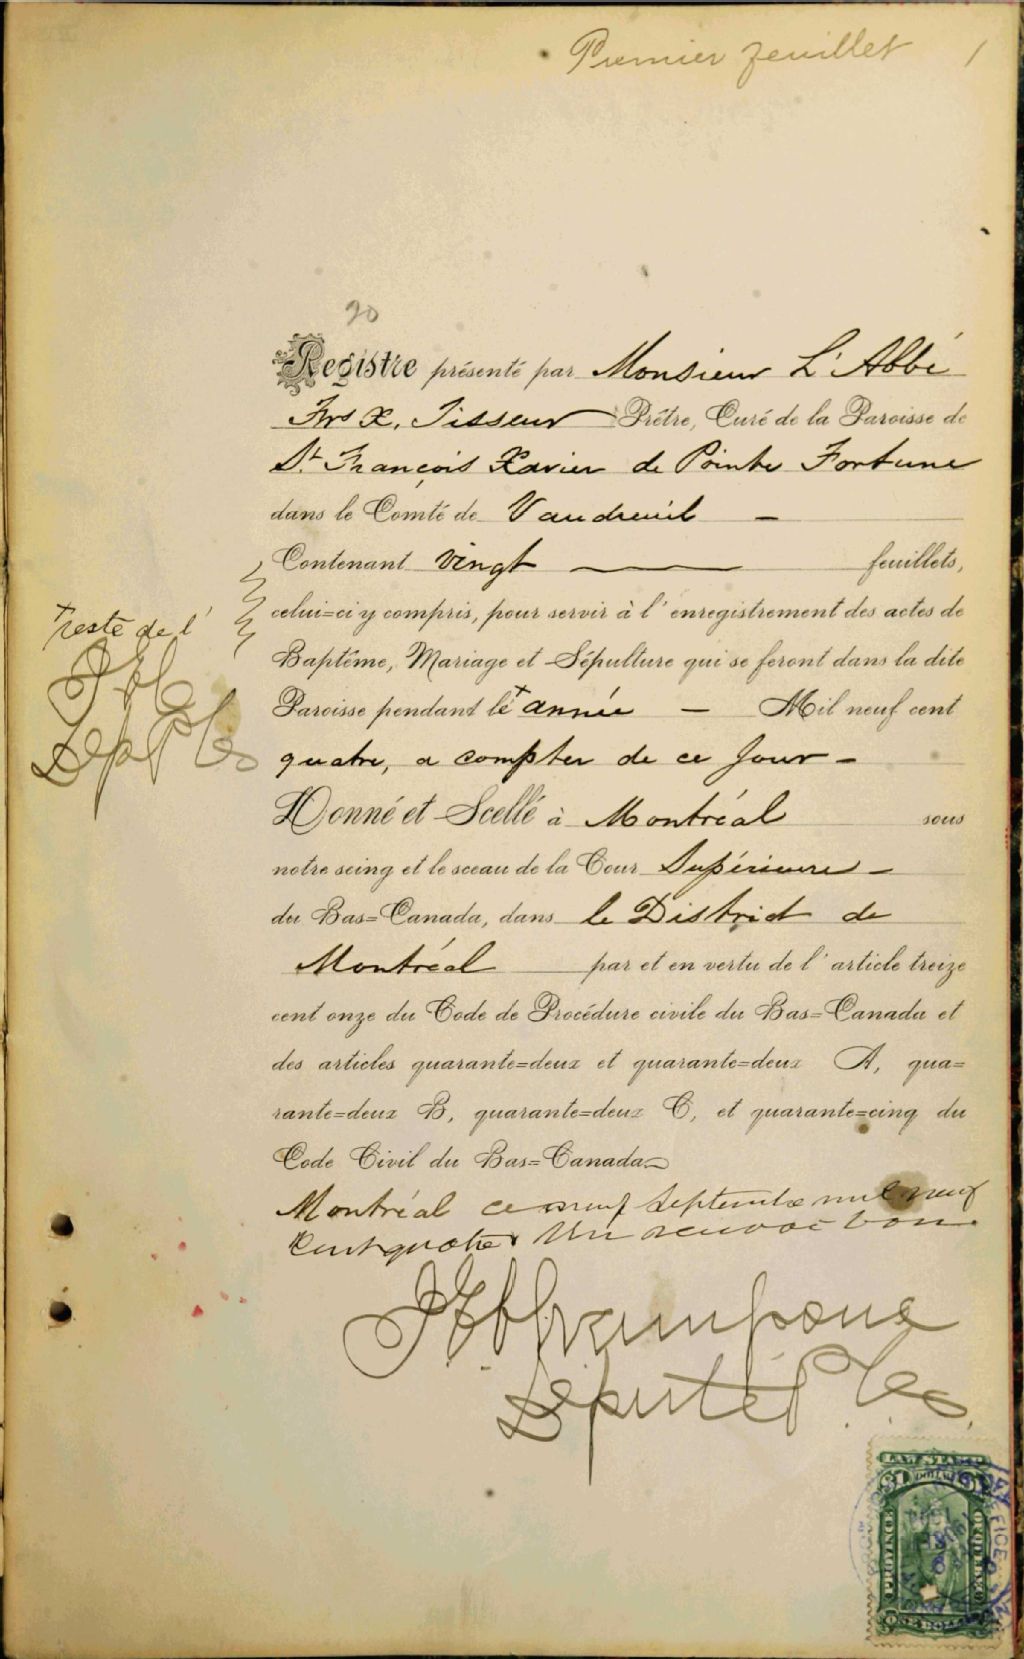 Premier feuillet 1
20
Registre présenté par Monsieur L'Abbé
Frs X. Tisseur Prêtre, Curé de la Paroisse de
St François Xavier de Pointe Fortune
dans le Comté de Vaudreuil -
Contenant vingt feuillets,
celui=ci y compris, pour servir à l'enregistrement des actes de
Baptême, Mariage et Sépulture qui se feront dans la dite
Paroisse pendant le + année - Mil neuf cent
quatre, a compter de ce jour -
Donné et Scellé à Montréal sous
notre seing et le sceau de la Cour Supérieure -
du Bas=Canada, dans le District de
Montréal par et en vertu de l'article treize
cent onze du Code de Procédure civile du Bas=Canada et
des articles quarante=deux et quarante=deux A, qua=
rante=deux B, quarante=deux C, et quarante=cinq du
Code Civil du Bas=Canada
Montréal ce neuf Septembre mil neuf
Cent quatre Un renvoi bon
Député P
+ reste de l'
Dep P
LAW STAMP
$1 DOLLAR $1
PROVINCE
OF QUEBEC
ONE DOLLAR